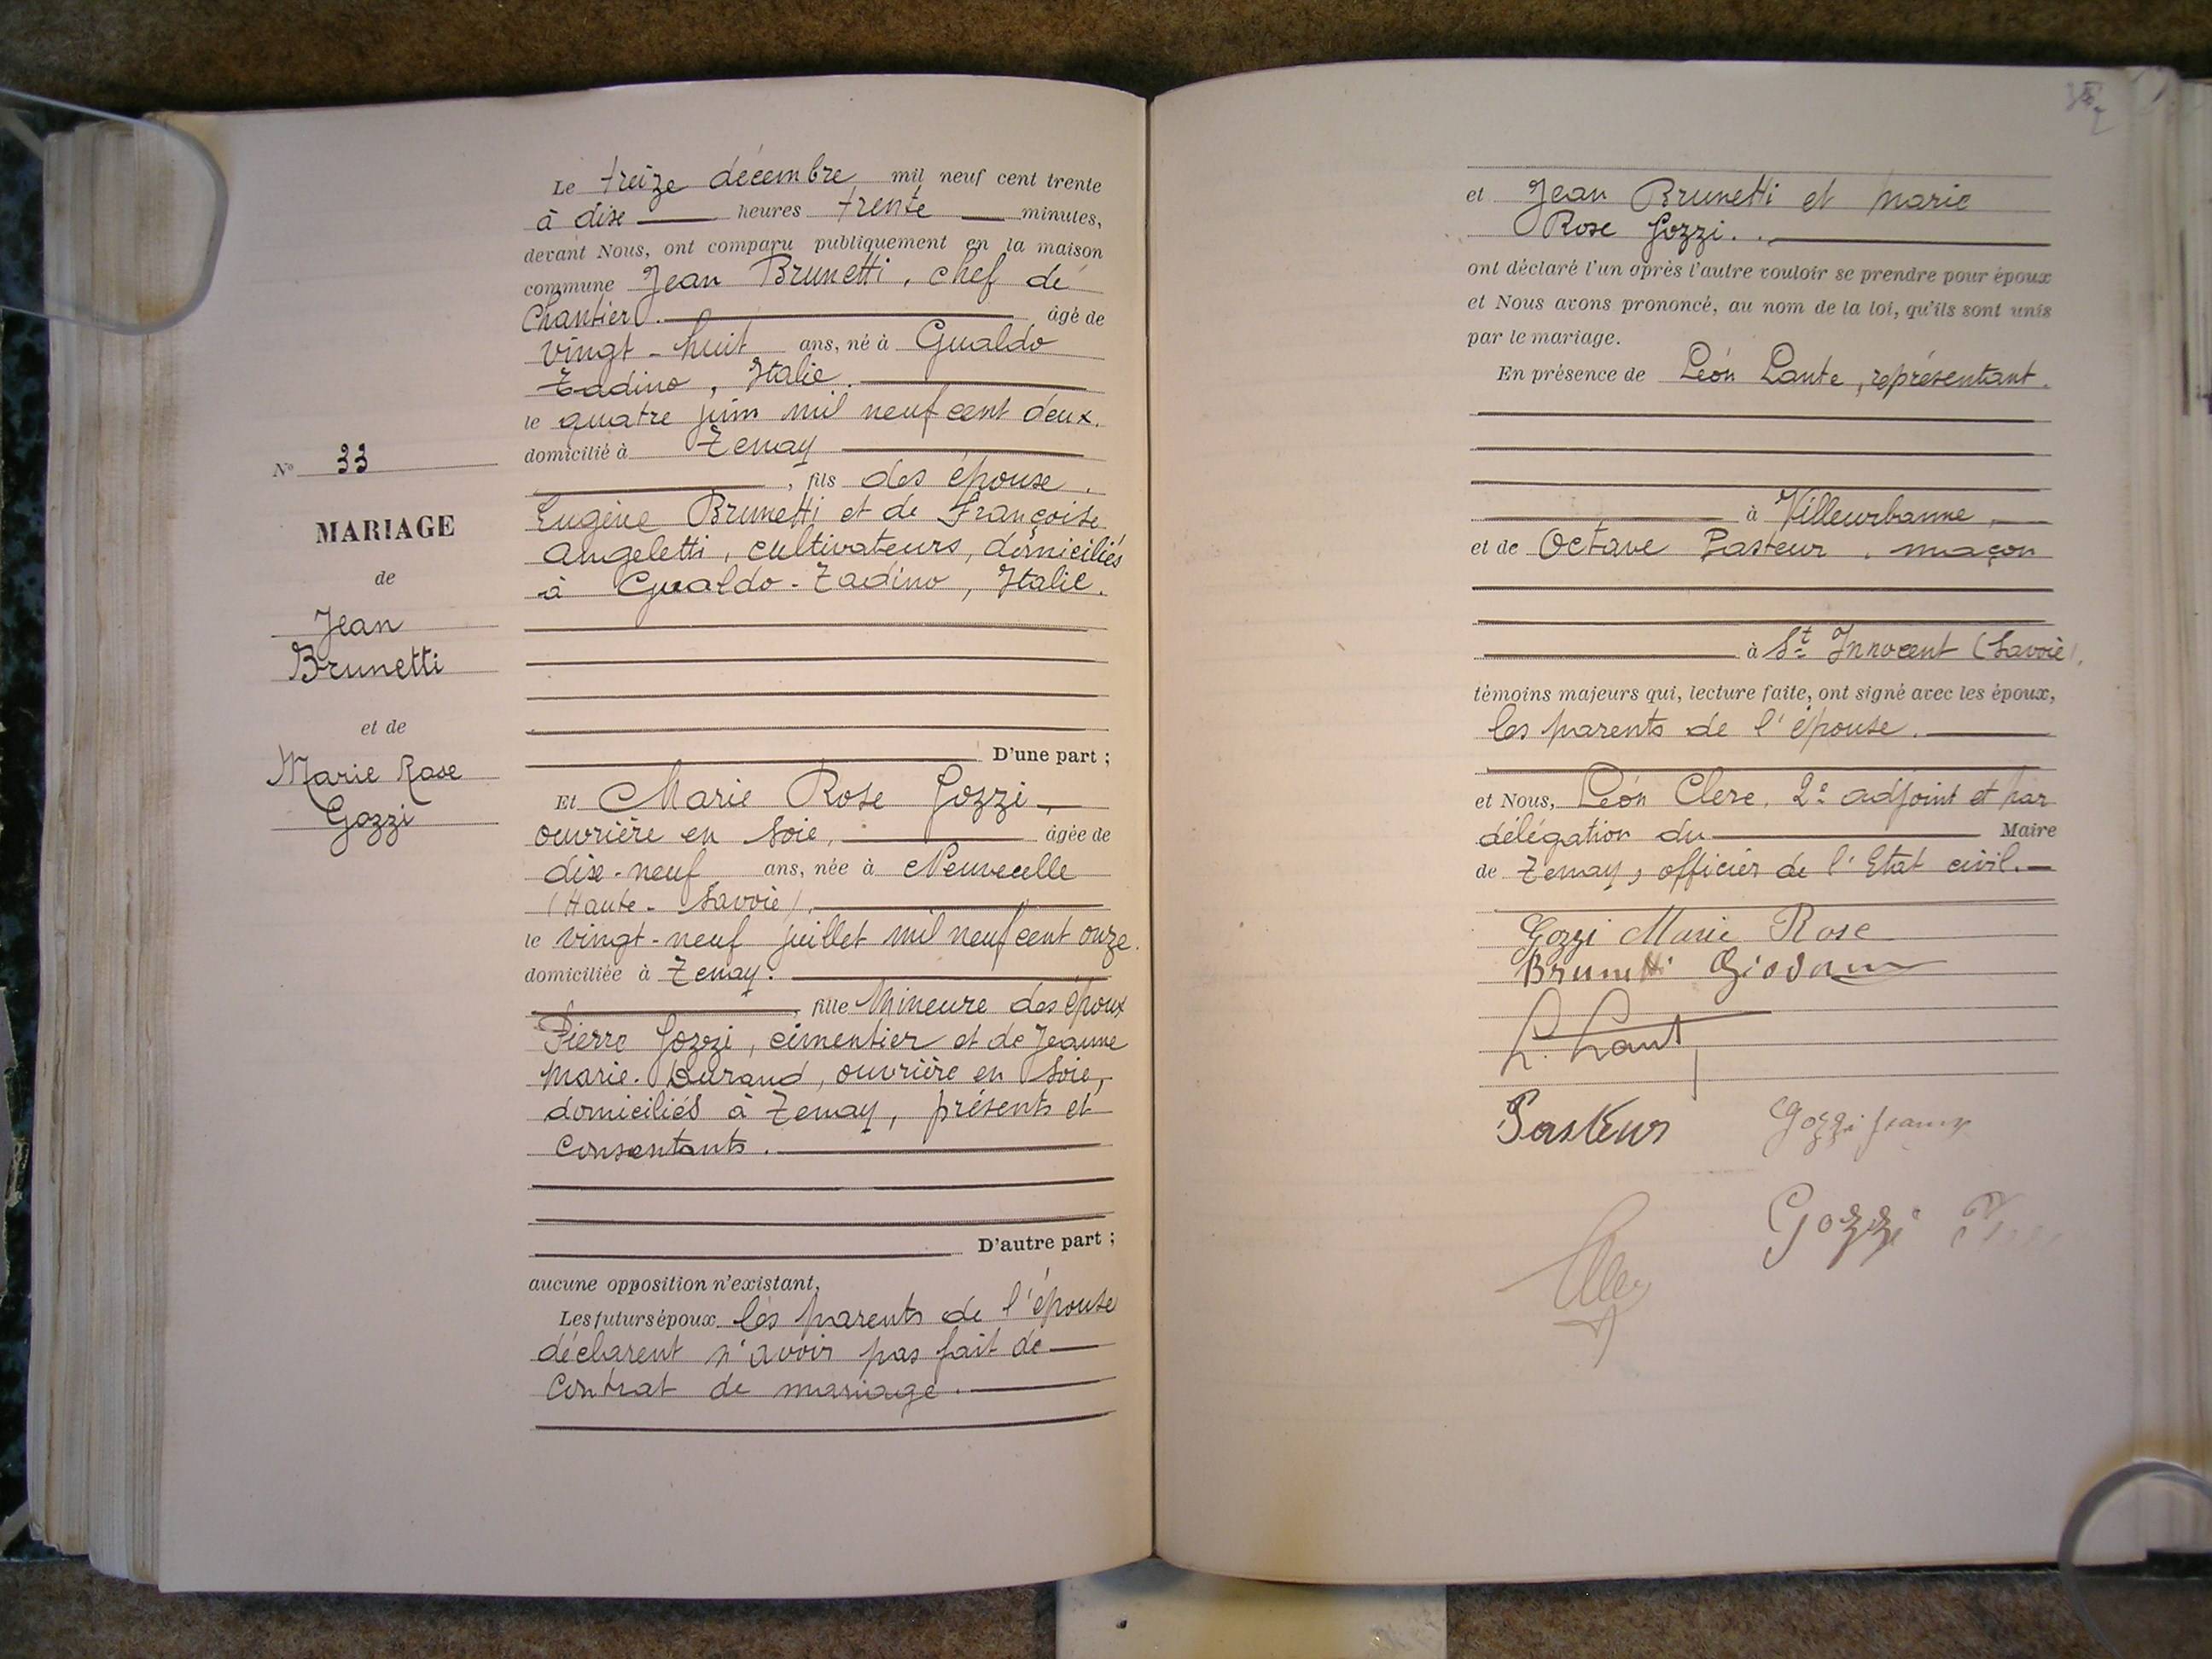 Le treize décembre mil neuf cent trente
à dix heures trente minutes,
devant Nous, ont comparu publiquement en la maison
commune Jean Brunetti, chef de
Chantier. âgé de
vingt-huit ans, né à Gualdo
Tadino, Italie.
le quatre juin mil neuf cent deux.
domicilié à Tenay
, fils des épouse.
Eugène Brunetti et de Françoise
Angeletti, cultivateurs, domiciliés
à Gualdo-Tadino, Italie.
D'une part ;
N° 33
MARIAGE
de
Jean
Brunetti
et de
Marie Rose
Gozzi
Et Marie Rose Gozzi,
ouvrière en soie, âgée de
dix-neuf ans, née à Neuvecelle
(Haute-Savoie),
le vingt-neuf juillet mil neuf cent onze.
domiciliée à Tenay.
, fille mineure des époux
Pierre Gozzi, cimentier et de Jeanne
Marie. Durand, ouvrière en soie,
domiciliés à Tenay, présents et
consentants.
D'autre part ;
aucune opposition n'existant,
Les futurs époux les parents de l'épouse
déclarent n'avoir pas fait de
contrat de mariage.
et Jean Brunetti et Marie
Rose Gozzi.
ont déclaré l'un après l'autre vouloir se prendre pour époux
et Nous avons prononcé, au nom de la loi, qu'ils sont unis
par le mariage.
En présence de Léon Lante, représentant.
à Villeurbanne,
et de Octave Pasteur, maçon
à St Innocent (Savoie),
témoins majeurs qui, lecture faite, ont signé avec les époux,
les parents de l'épouse.
et Nous, Léon Clerc, 2e adjoint et par
délégation du Maire
de Tenay, officier de l'Etat civil.
Gozzi Marie Rose
Brunetti Giovanni
Pasteur
Gozzi Jeanne
Gozzi